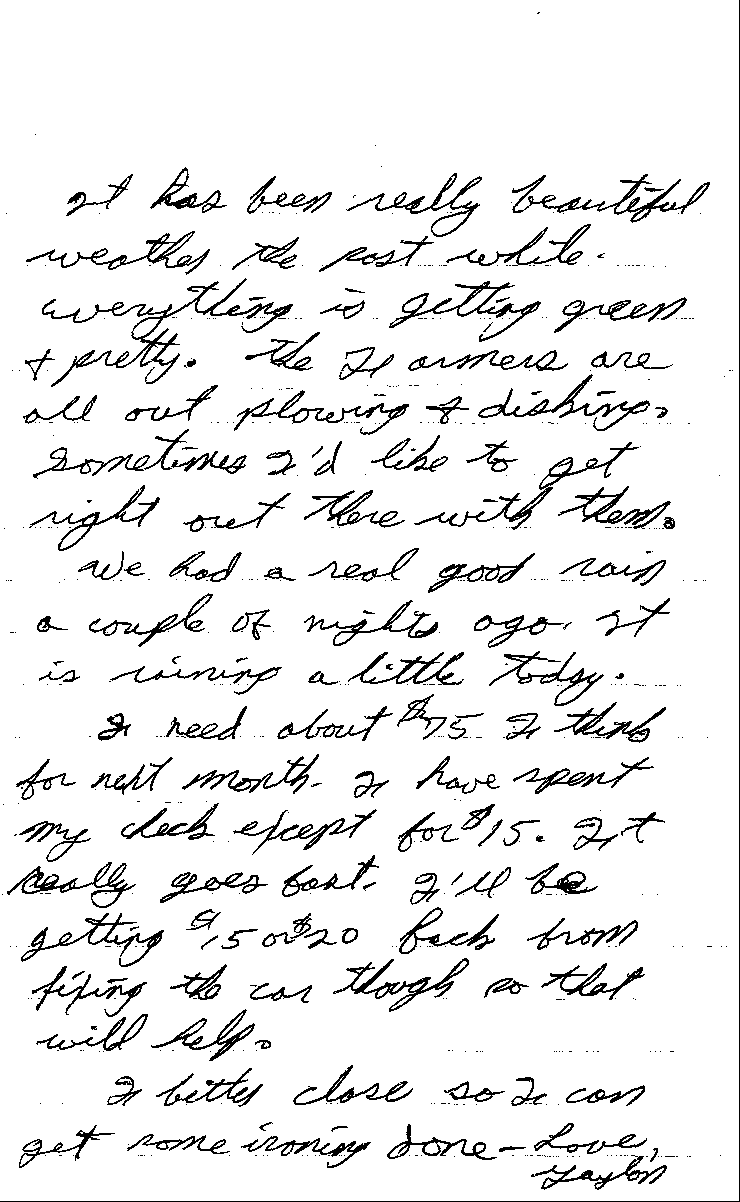 It has been really beautiful
weather the past while.
Everything is getting green
+ pretty. The Farmers are
all out plowing & disking.
Sometimes I'd like to get
right out there with them.
We had a real good rain
a couple of nights ago. It
is raining a little today.
I need about $75 I think
for next month. I have spent
my check except for $15. It
really goes fast. I'll be
getting $15 or $20 back from
fixing the car though so that
will help.
I better close so I can
get some ironing done - Love,
Taylon